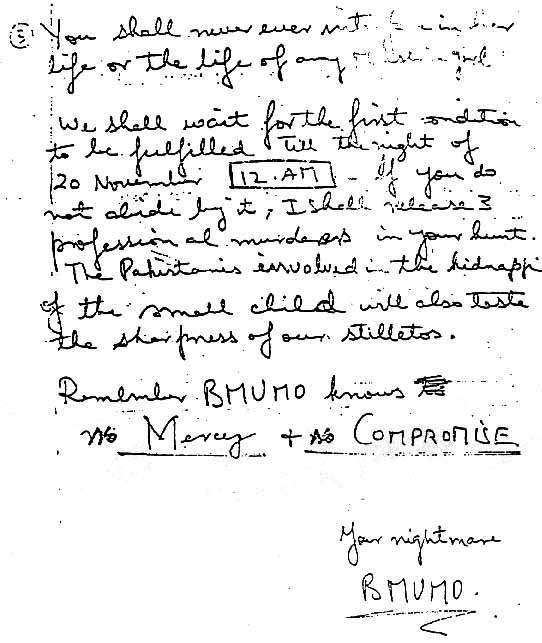 (5) You shall never ever in her
life or the life of any girl
We shall wait for the first condition
to be fulfilled till the night of
20 November 12.AM - If you do
not abide by it, I shall release 3
professional murderers in your hunt.
The Pakistanis involved in the kidnappi
of the small child will also taste
the sharpness of our stilletos.
Remember BMUMO knows
No Mercy + No COMPROMISE
Your nightmare
BMUMO.